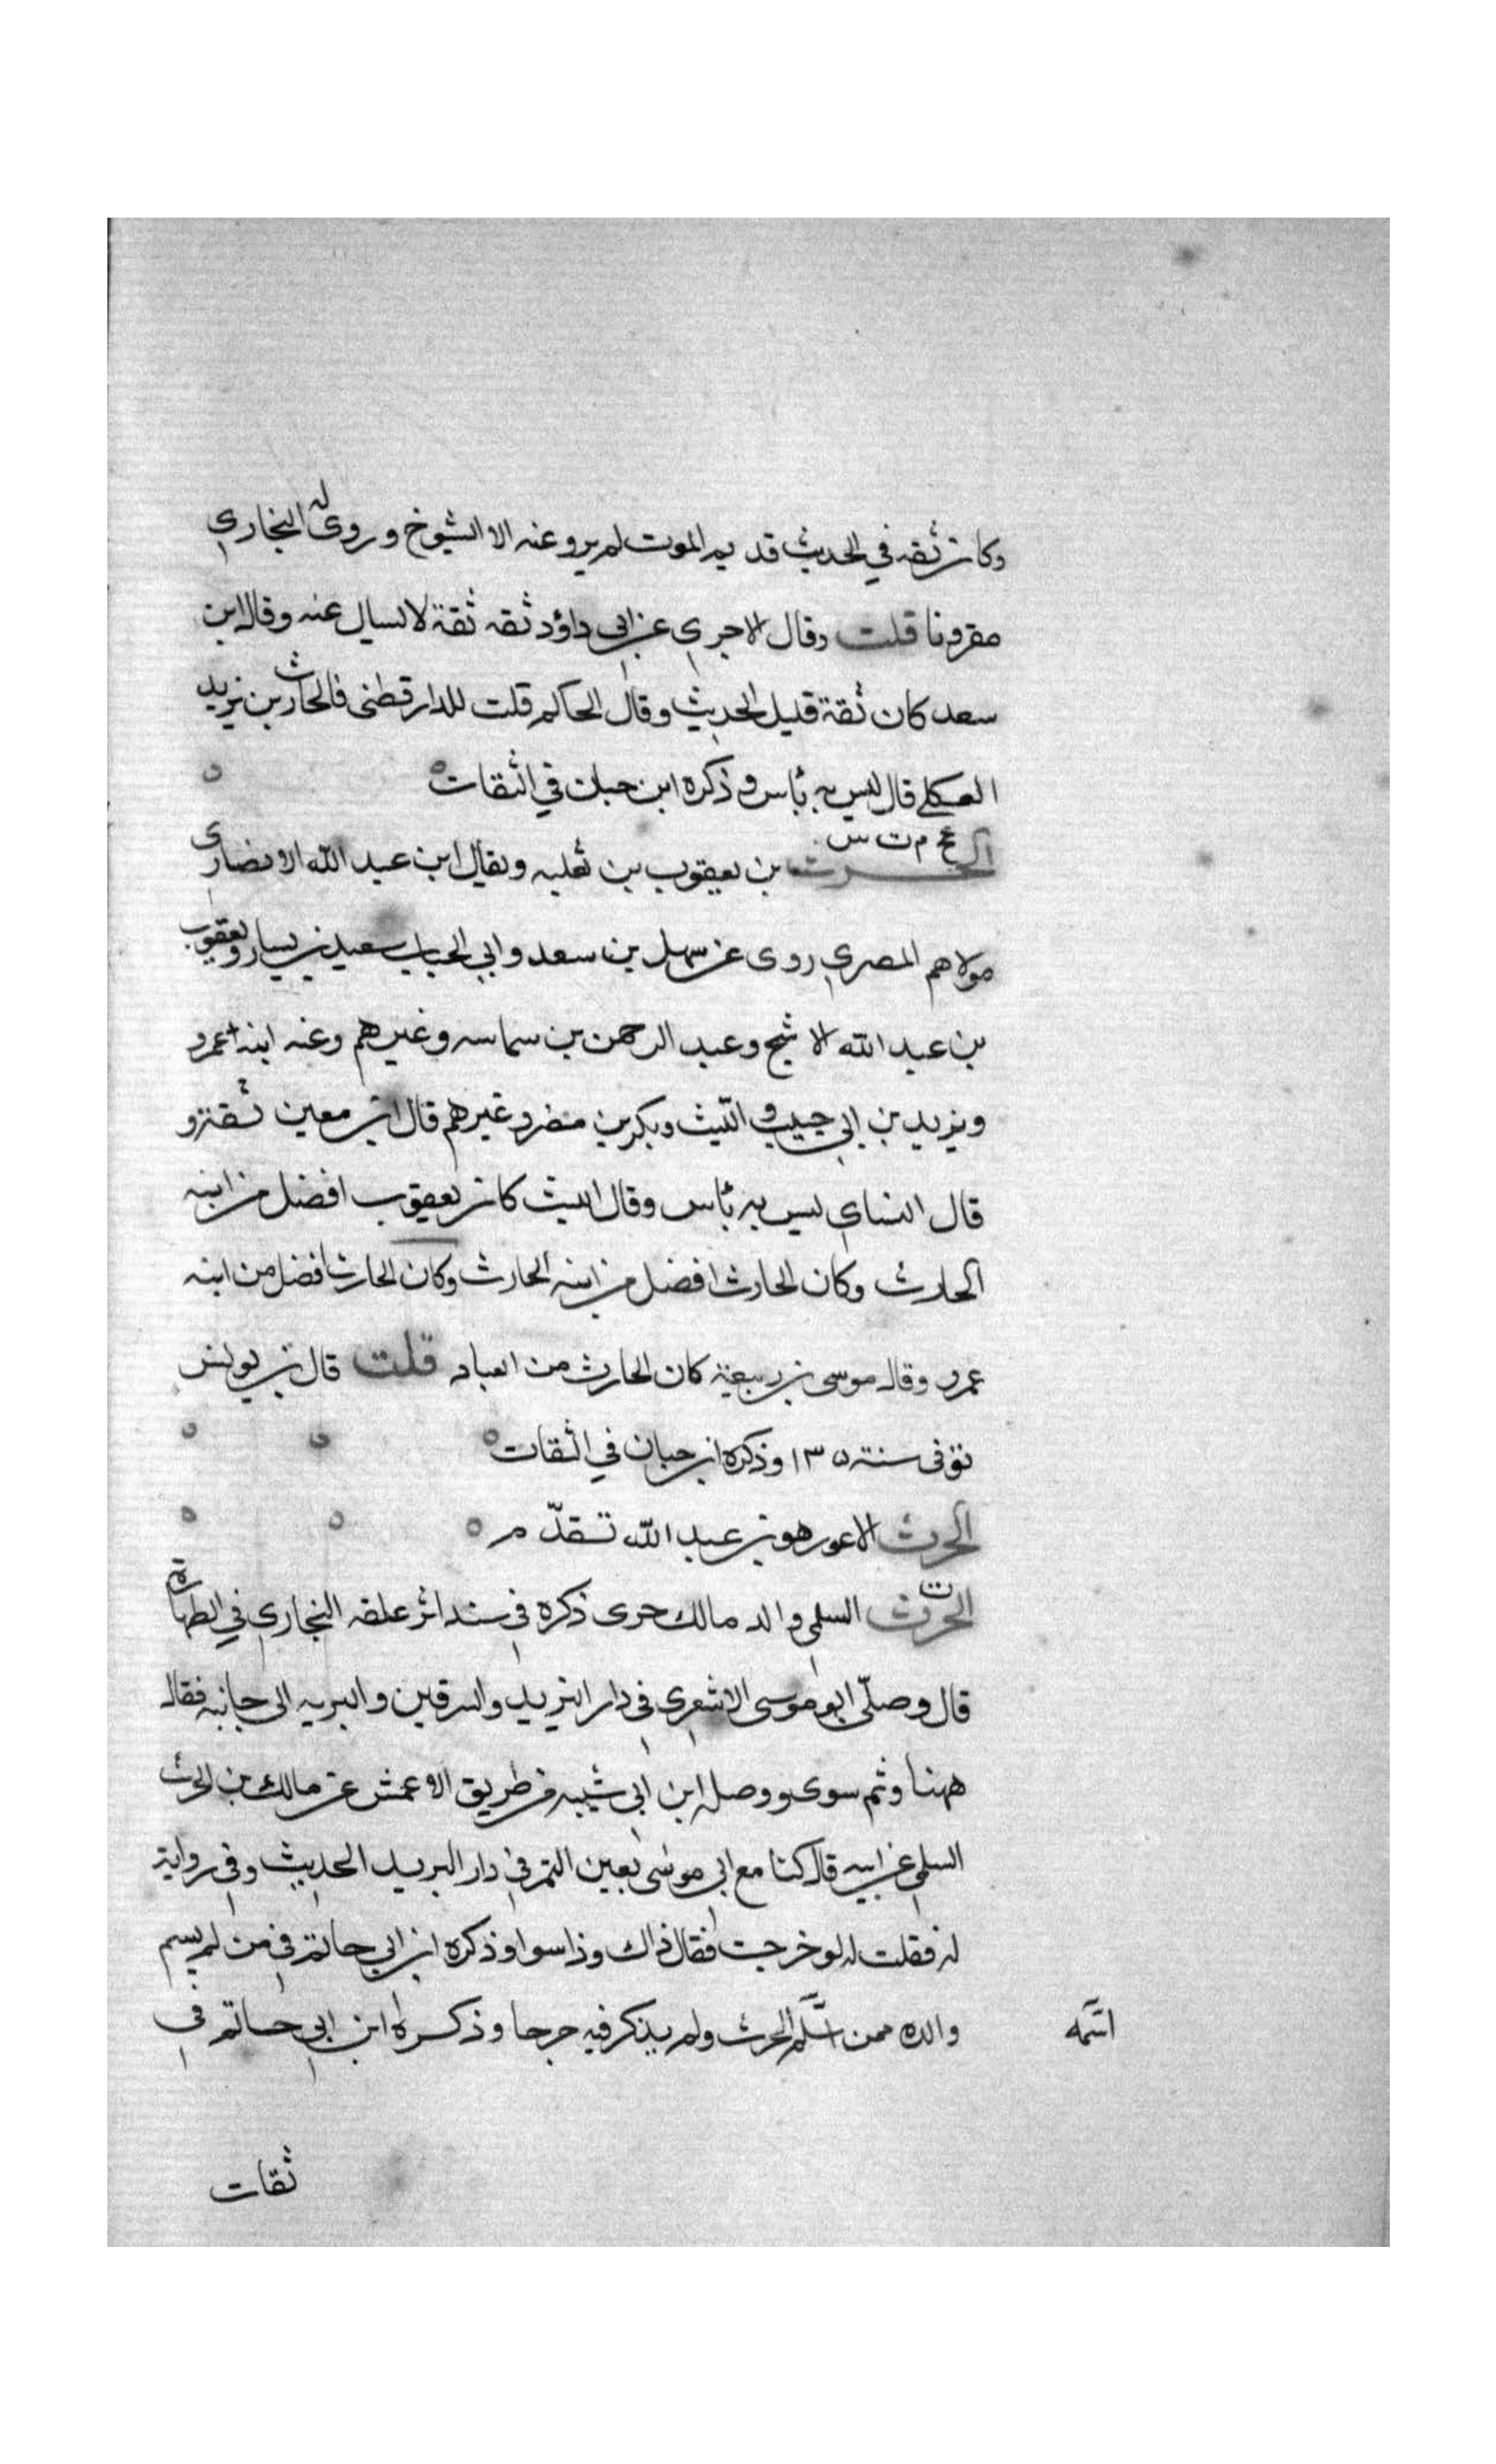 وكان ثقه في الحديث قديم الموت لم يرو عنه الا الشيوخ وروى له البخاري
مقرونا قلت وقال الاجري عن ابي داؤد ثقه ثقة لا يسال عنه وقال ابن
سعد كان ثقة قليل الحديث وقال الحاكم قلت للدارقطنى فالحارث بن يزيد
العكلي قال ليس به بأس وذكره ابن حبان في الثقات
عخ م ت س
الحرث بن يعقوب بن ثعلبه ويقال ابن عبد الله الانصارى
مولاهم المصري روى عن سهل بن سعد وابي الحباب سعيد بن يسار ويعقوب
بن عبد الله الاشج وعبد الرحمن بن سماسه وغيرهم وعنه ابنه عمرو
ويزيد بن ابي حبيب والليث وبكر بن مضر وغيرهم قال ابن معين ثقة و
قال النساي ليس به بأس وقال الليث كان يعقوب افضل من ابنه
الحارث وكان الحارث افضل من ابنه الحارث وكان الحارث افضل من ابنه
عمرو وقال موسى بن ربيعة كان الحارث من العباد قلت قال بن يونس
توفى سنة ١٣٥ وذكره ابن حبان في الثقات
الحرث الاعور هو بن عبد الله تقدّم
الحرث السلمي والد مالك جرى ذكره في سند اثر علقه البخاري في الطهارة
قال وصلّى ابو موسى الاشعرى في دار البريد والسرقين والبريه الى جانبه فقال
ههنا وثم سوى ووصله ابن ابي شيبه من طريق الاعمش عن مالك بن الحرث
السلمي عن ابيه قال كنا مع ابي موسى بعين التمر في دار البريد الحديث وفي رواية
له فقلت له لو خرجت فقال ذاك وذا سوا وذكره ابن ابي حاتم في من لم يسم
والده ممن اسلم الحرث ولم يذكر فيه جرحا وذكره ابن ابي حاتم في
اسمه
ثقات